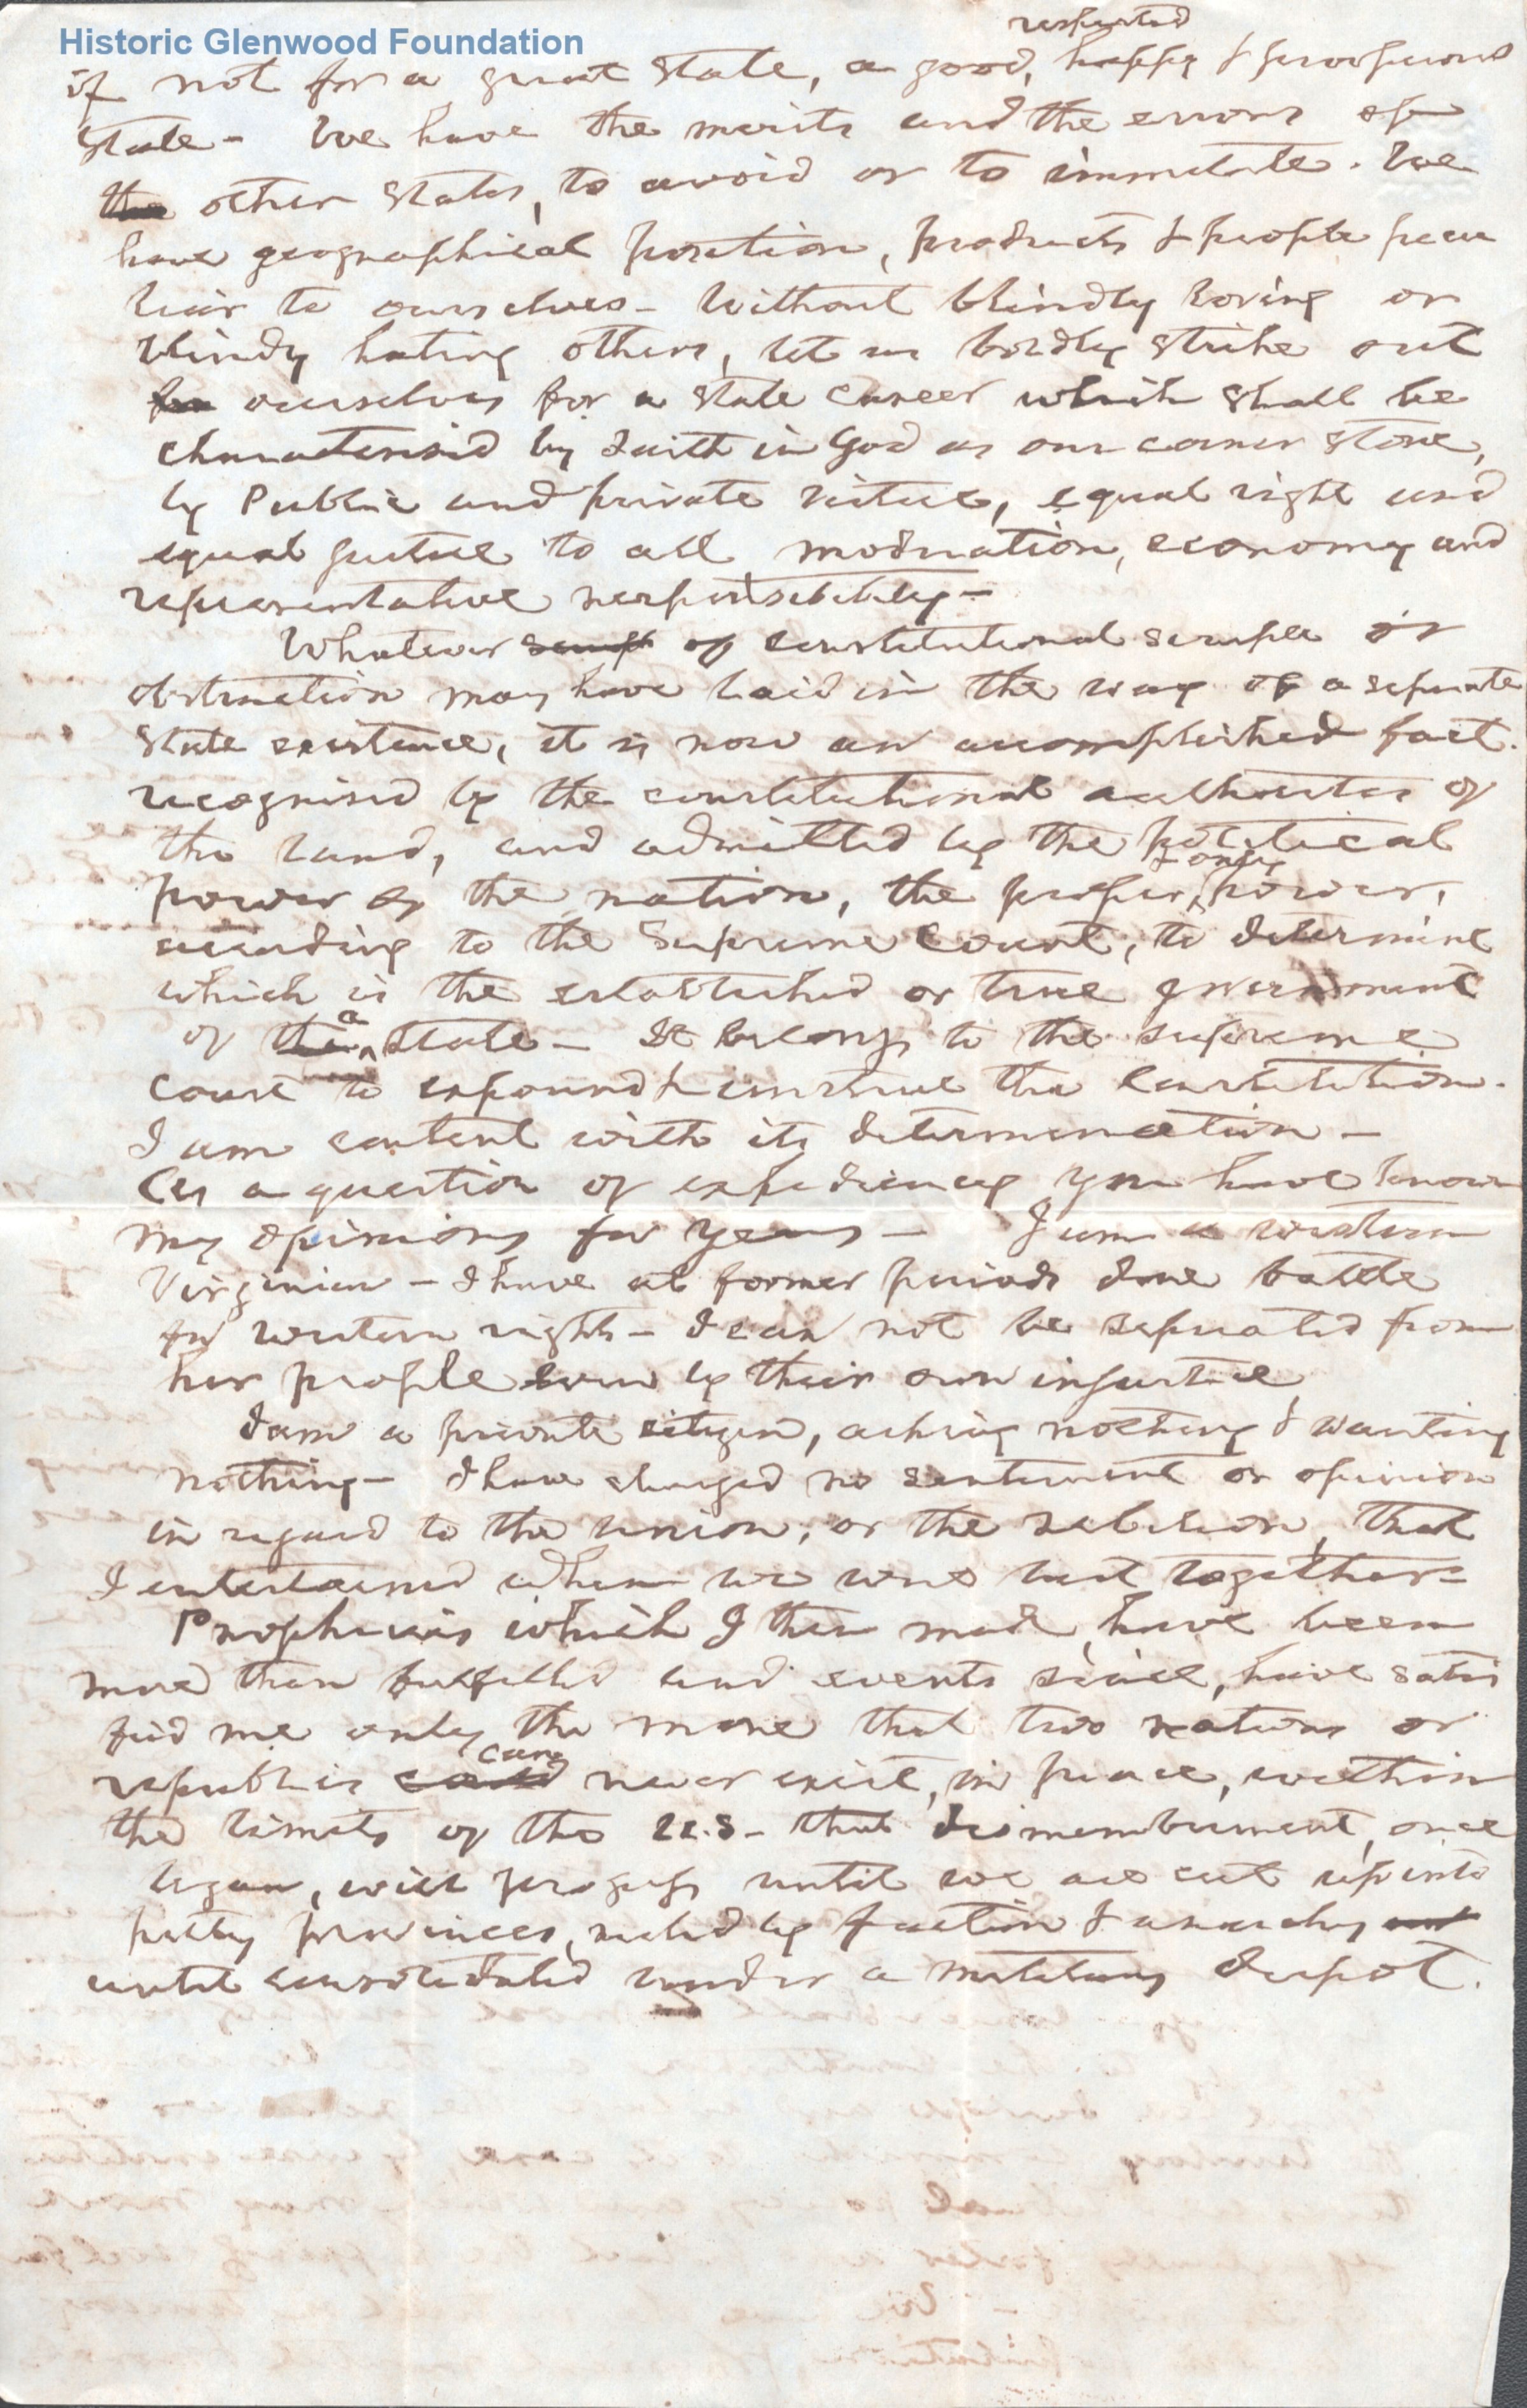 Historic Glenwood Foundation
respected
if not for a great State, a good, happy & prosperous
State - We have the merits and the errors of
the other States, to avoid or to immitate. We
have geographical position, products & people pecu
liar to ourselves - Without blindly loving or
blindy hating others, let us boldly strike out
for ourselves for a State career which shall be
characterised by Faith in God as our corner stone,
by Public and private virtue, equal right and
equal justice to all moderation, economy and
representative responsibility -
Whatever scrup of constitutional scruple or
obstruction may have laid in the way of a separate
State existence, it is now an accomplished fact.
recognised by the constitutional authorities of
the land, and admitted by the political
& only
power of the nation, the proper power,
according to the Supreme Court, to determine
which is the established or true government
a
of the State - It belongs to the supreme
court to expound & construe the Constitution.
I am content with its determination -
As a question of expediency you have known
my opinions for years - I am a western
Virginian - I have at former periods done battle
for western rights - I can not be separated from
her people even by their own injustice
I am a private citizen, asking nothing & wanting
nothing - I have changed no sentiment or opinion
in regard to the union, or the rebelion, that
I entertained when we were last together -
Prophecies which I then made, have been
more than fulfilled and events since, have satis
fied me only the more that two nations or
can
republics could never exist, in peace, within
the limits of the U.S - that dismemberment, once
began, will progress until we are cut up into
petty provinces, ruled by faction & anarchy and
until consolidated under a military despot.